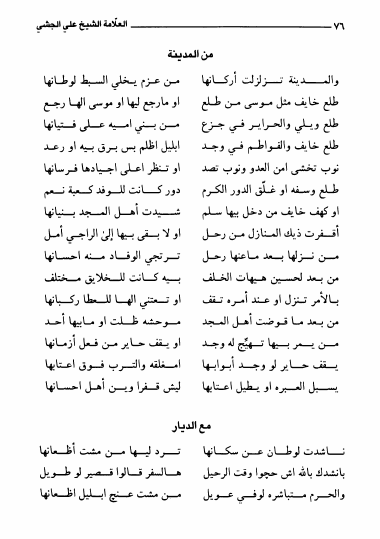 ٧٦ العلّامة الشيخ علي الجشي
من المدينة
والمدينة تزلزلت أركانها من عزم يخلي السبط لوطانها
طلع خايف مثل موسى من طلع او مارجع ليها او موسى الها رجع
طلع ويلي والحراير في جزع من بني اميه على فتيانها
طلع خايف والفواطم في وجد ابليل اظلم بس برق بيه او رعد
نوب تخشى امن العدو ونوب تصد او تنظر اعلى اجيادها فرسانها
طلع وسفه او غلّق الدور الكرم دور كانت للوفد كعبة نعم
او كهف خايف من دخل بيها سلم شيدت أهل المجد بنيانها
أقفرت ذيك المنازل من رحل او لا بقى بيها إلى الراجي أمل
من نزلها بعد ماعنها رحل ترتجي الوفاد منه احسانها
من بعد لحسين هيهات الخلف بيه كانت للخلايق مختلف
بالأمر تنزل او عند أمره تقف او تعتني الها للعطا ركبانها
من بعد ما قوضت أهل المجد موحشه ظلت او مابيها أحد
من يمر بيها تهيّج له وجد او يقف حاير من فعل أزمانها
يقف حاير لو وجد أبوابها امغلقه والترب فوق اعتابها
يسبل العبره او يطيل اعتابها ليش قفرا وين أهل احسانها
مع الديار
ناشدت لوطان عن سكانها ترد ليها من مشت أظعانها
بانشدك بالله اش حچوا وقت الرحيل هالسفر قالوا قصير لو طويل
والحرم متباشره لوفي عويل من مشت عنچ ابليل اظعانها